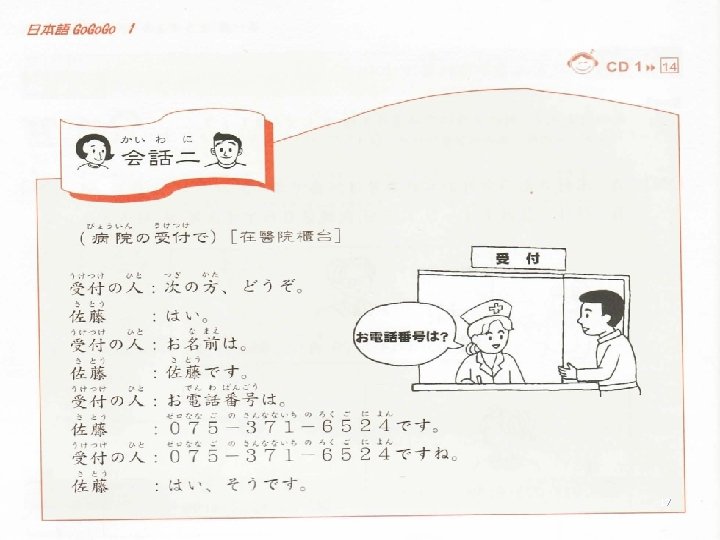 日本語 GoGoGo 1
CD 1 14
かい わ に
会話二
びょういん うけつけ
(病院の受付で) [在醫院櫃台]
受付
お電話番号は?
うけつけ ひと つぎ かた
受付の人：次の方、どうぞ。
さ とう
佐藤：はい。
うけつけ ひと な まえ
受付の人：お名前は。
さ とう さ とう
佐藤：佐藤です。
うけつけ ひと でん わ ばんごう
受付の人：お電話番号は。
さ とう ゼロなな ご の さんなないち の ろく ご に よん
佐藤：０７５－３７１－６５２４です。
うけつけ ひと ゼロなな ご の さんなないち の ろく ご に よん
受付の人：０７５－３７１－６５２４ですね。
さ とう
佐藤：はい、そうです。
7